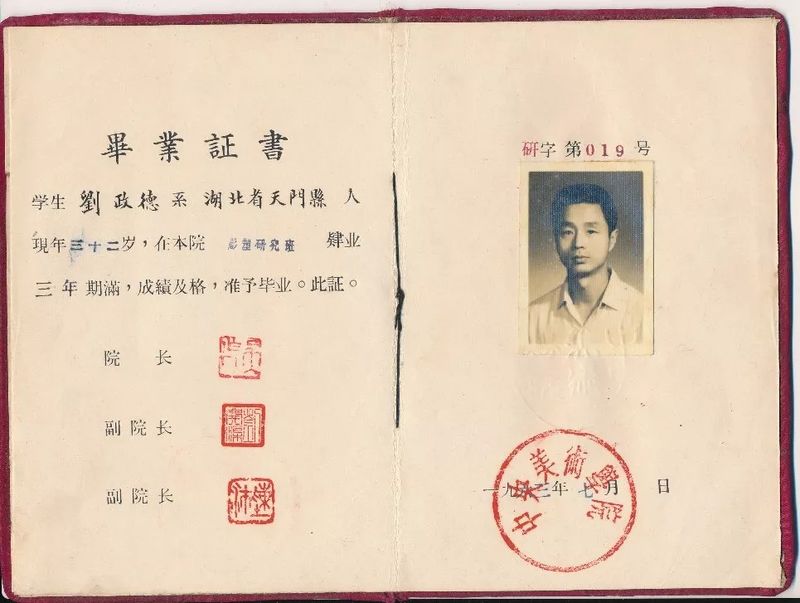 畢業証書
学生 劉政德 系 湖北省天門縣 人
現年三十二岁，在本院 彫塑研究班 肄业
三年期滿，成績及格，准予毕业。此証。
院 长
副院长
副院长
研字第019号
一九六三年七月 日
中央美術學院